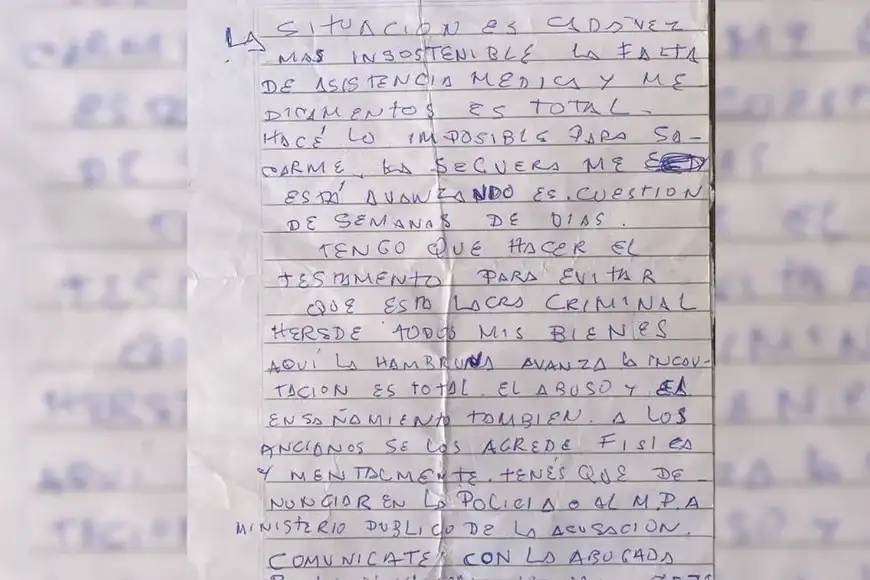 LA SITUACION ES CADA VEZ
MAS INSOSTENIBLE LA FALTA
DE ASISTENCIA MEDICA Y ME
DICAMENTOS ES TOTAL.
HACÉ LO IMPOSIBLE PARA SA-
CARME. LA SEGUERA ME
ESTÁ AVANZANDO ES CUESTION
DE SEMANAS DE DIAS.
TENGO QUE HACER EL
TESTAMENTO PARA EVITAR
QUE ESTA LACRA CRIMINAL
HEREDE TODOS MIS BIENES
AQUÍ LA HAMBRUNA AVANZA LA INCOU-
TACION ES TOTAL. EL ABUSO Y EL
ENSAÑAMIENTO TAMBIEN. A LOS
ANCIANOS SE LOS AGREDE FISICA
Y MENTALMENTE. TENÉS QUE DE
NUNCIAR EN LA POLICIA O AL M.P.A
MINISTERIO PUBLICO DE LA ACUSACION.
COMUNICATE CON LA ABOGADA